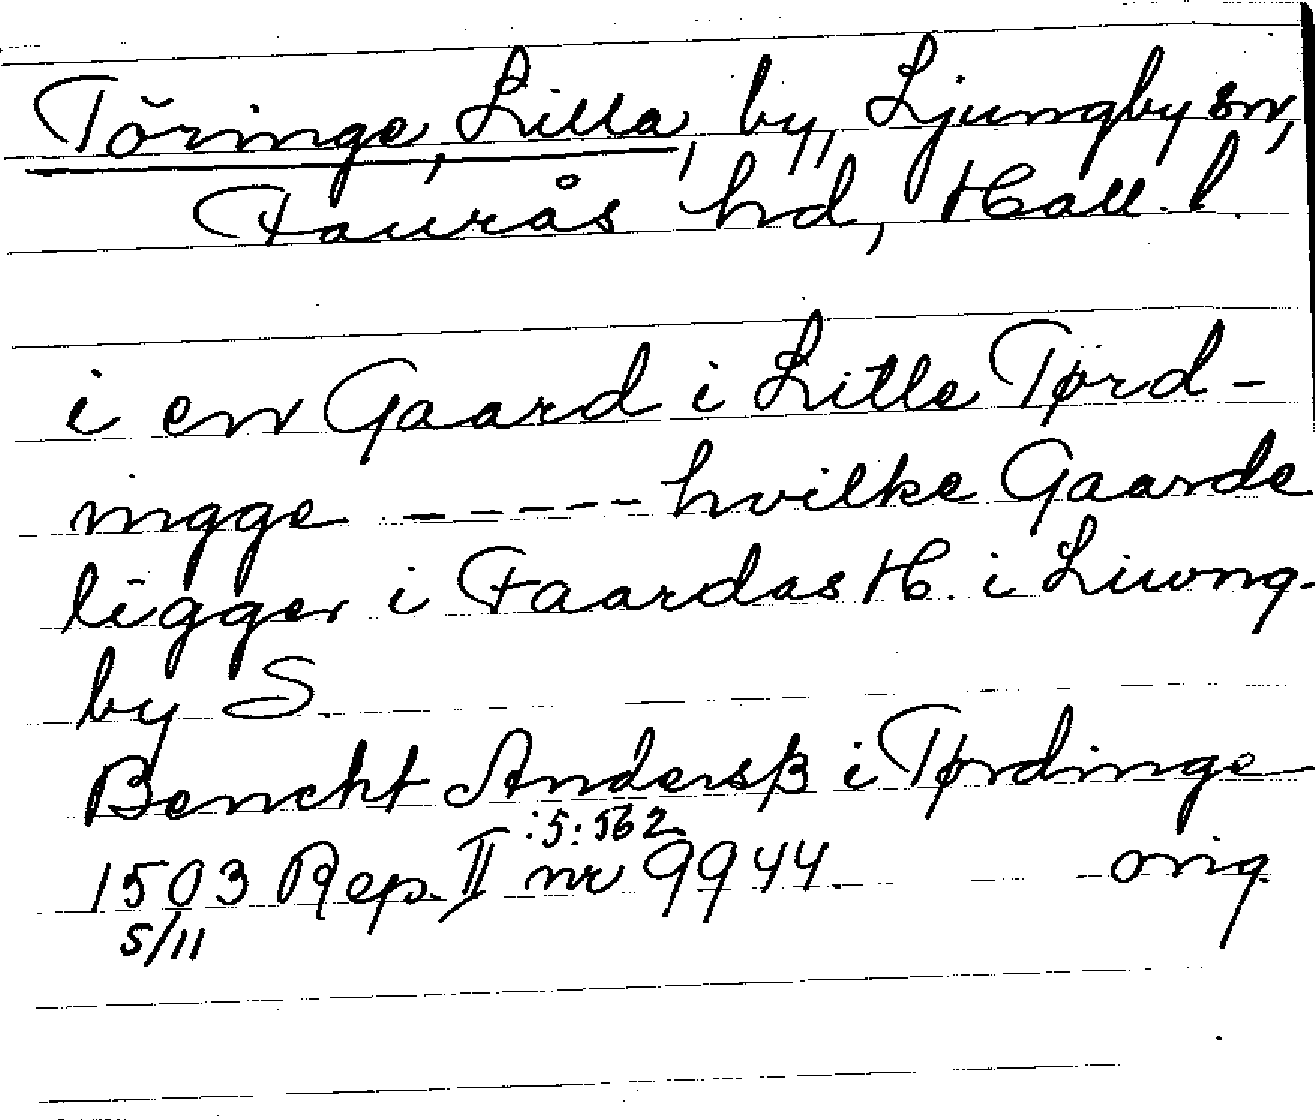 Töringe, Lilla, by, Ljungby sn,
Faurås hd, Hall. l.
i en Gaard i Litle Tørd-
ingge ----- hvilke Gaarde
ligger i Faardas H. i Liwng-
by S.
Bencht Andersß i Tørdinge
:5:562
1503 Rep. II nr 9944. orig.
5/11